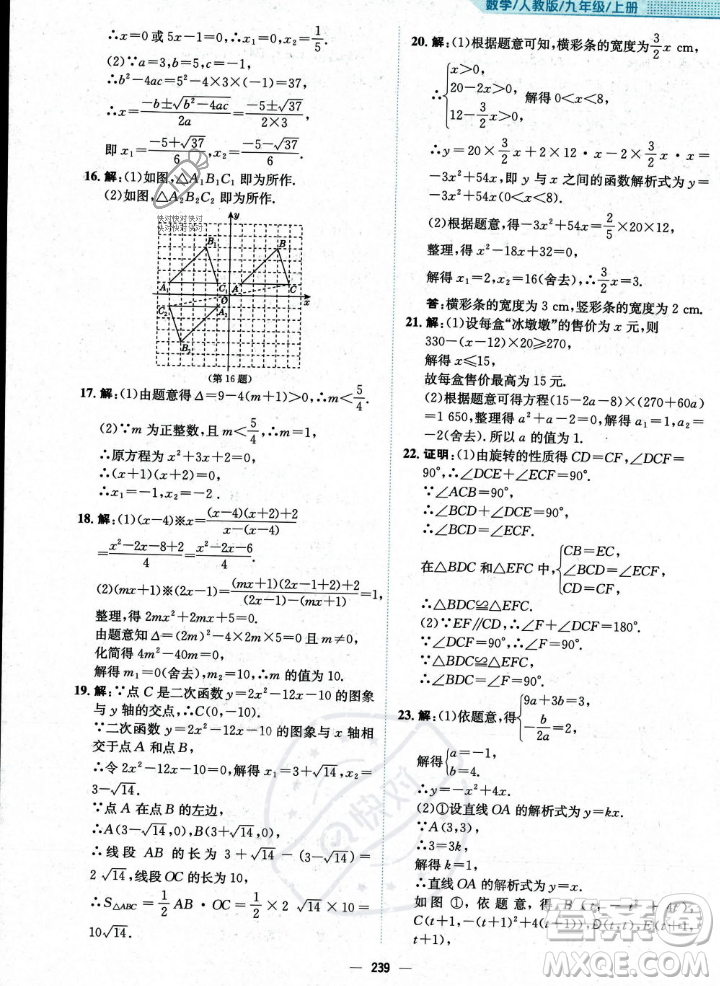 数学/人教版/九年级/上册
∴x=0或5x-1=0,∴x₁=0,x₂=1/5.
(2)∵a=3,b=5,c=-1,
∴b²-4ac=5²-4×3×(-1)=37,
∴x=(-b±√(b²-4ac))/2a=(-5±√37)/(2×3),
即x₁=(-5+√37)/6,x₂=(-5-√37)/6.
16. 解:(1)如图,△A₁B₁C₁即为所作.
(2)如图,△A₂B₂C₂即为所作.
快对快对快对快对
快对快对快对快对
y
B₁
B
A₁
C₁
A
C
C₂
O
A₂
x
B₂
(第16题)
17. 解:(1)由题意得Δ=9-4(m+1)>0,∴m<5/4.
(2)∵m为正整数,且m<5/4,∴m=1,
∴原方程为x²+3x+2=0,
∴x₁=-1,x₂=-2.
18. 解:(1)(x-4)※x=((x-4)(x+2)+2)/(x-(x-4))
=(x²-2x-8+2)/4=(x²-2x-6)/4.
(2)(mx+1)※(2x-1)=((mx+1)(2x-1+2)+2)/((2x-1)-(mx+1))=0,
整理,得2mx²+(m+2)x+3=0.
由题意知Δ=(2m)²-4×2m×5=0且m≠0,
化简得4m²-40m=0,
解得m₁=0(舍去),m₂=10,∴m的值为10.
19. 解:∵点C是二次函数y=2x²-12x-10的图象
与y轴的交点,∴C(0,-10).
∵二次函数y=2x²-12x-10的图象与x轴相
交于点A和点B,
∴令2x²-12x-10=0,解得x₁=3+√14,x₂=
3-√14.
∵点A在点B的左边,
∴A(3-√14,0),B(3+√14,0),
∴线段AB的长为(3+√14)-(3-√14)=
2√14,线段OC的长为10,
∴S△ABC=1/2AB·OC=1/2×2√14×10=
10√14.
20. 解:(1)根据题意可知,横彩条的宽度为3/2x cm,
∴{x>0,
20-2x>0,
12-3/2x>0,
解得0<x<8,
∴y=20×3/2x+2×12·x-2×3/2x·x=
-3x²+54x,
即y与x之间的函数解析式为y=
-3x²+54x(0<x<8).
(2)根据题意,得-3x²+54x=2/5×20×12,
整理,得x²-18x+32=0,
解得x₁=2,x₂=16(舍去),∴3/2x=3.
答:横彩条的宽度为3 cm,竖彩条的宽度为2 cm.
21. 解:(1)设每盒“冰墩墩”的售价为x元,则
330-(x-12)×20≥270,
解得x≤15,
故每盒售价最高为15元.
(2)根据题意可得方程(15-2a-8)×(270+60a)
=1 650,整理,得2a²+2a-4=0,解得a₁=1,
a₂=-2(舍去).所以a的值为1.
22. 证明:(1)由旋转的性质得CD=CF,∠DCF=
90°,∴∠DCE+∠ECF=90°.
∵∠ACB=90°,
∴∠BCD+∠DCE=90°,
∴∠BCD=∠ECF.
在△BDC和△EFC中,{CB=EC,
∠BCD=∠ECF,
CD=CF,
∴△BDC≌△EFC.
(2)∵EF∥CD,∴∠F+∠DCF=180°.
∵∠DCF=90°,∴∠F=90°.
∵△BDC≌△EFC,
∴∠BDC=∠F=90°.
23. 解:(1)依题意,得{9a+3b=3,
-b/2a=2,
解得{a=-1,
b=4.
∴y=-x²+4x.
(2)①设直线OA的解析式为y=kx.
∵A(3,3),
∴3=3k,
解得k=1,
∴直线OA的解析式为y=x.
如图①,依题意,得B(t,-t²+4t),
C(t+1,-(t+1)²+4(t+1)),D(t,t),
E(t+1,t+1).
239
快对
答案圈
MXQE.COM